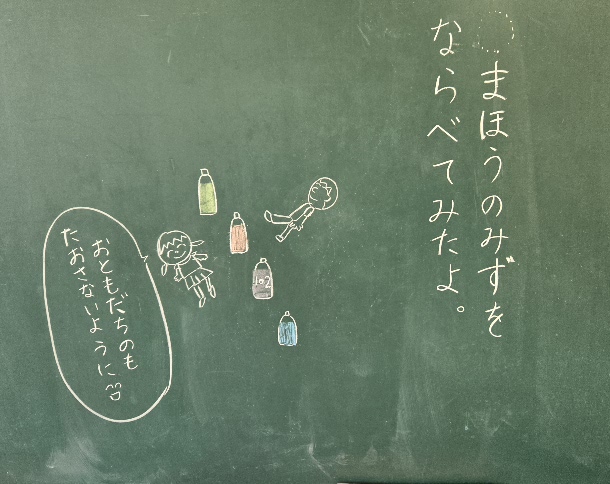 まほうのみずを
ならべてみたよ。
1-2
おともだちのも
たおさないように